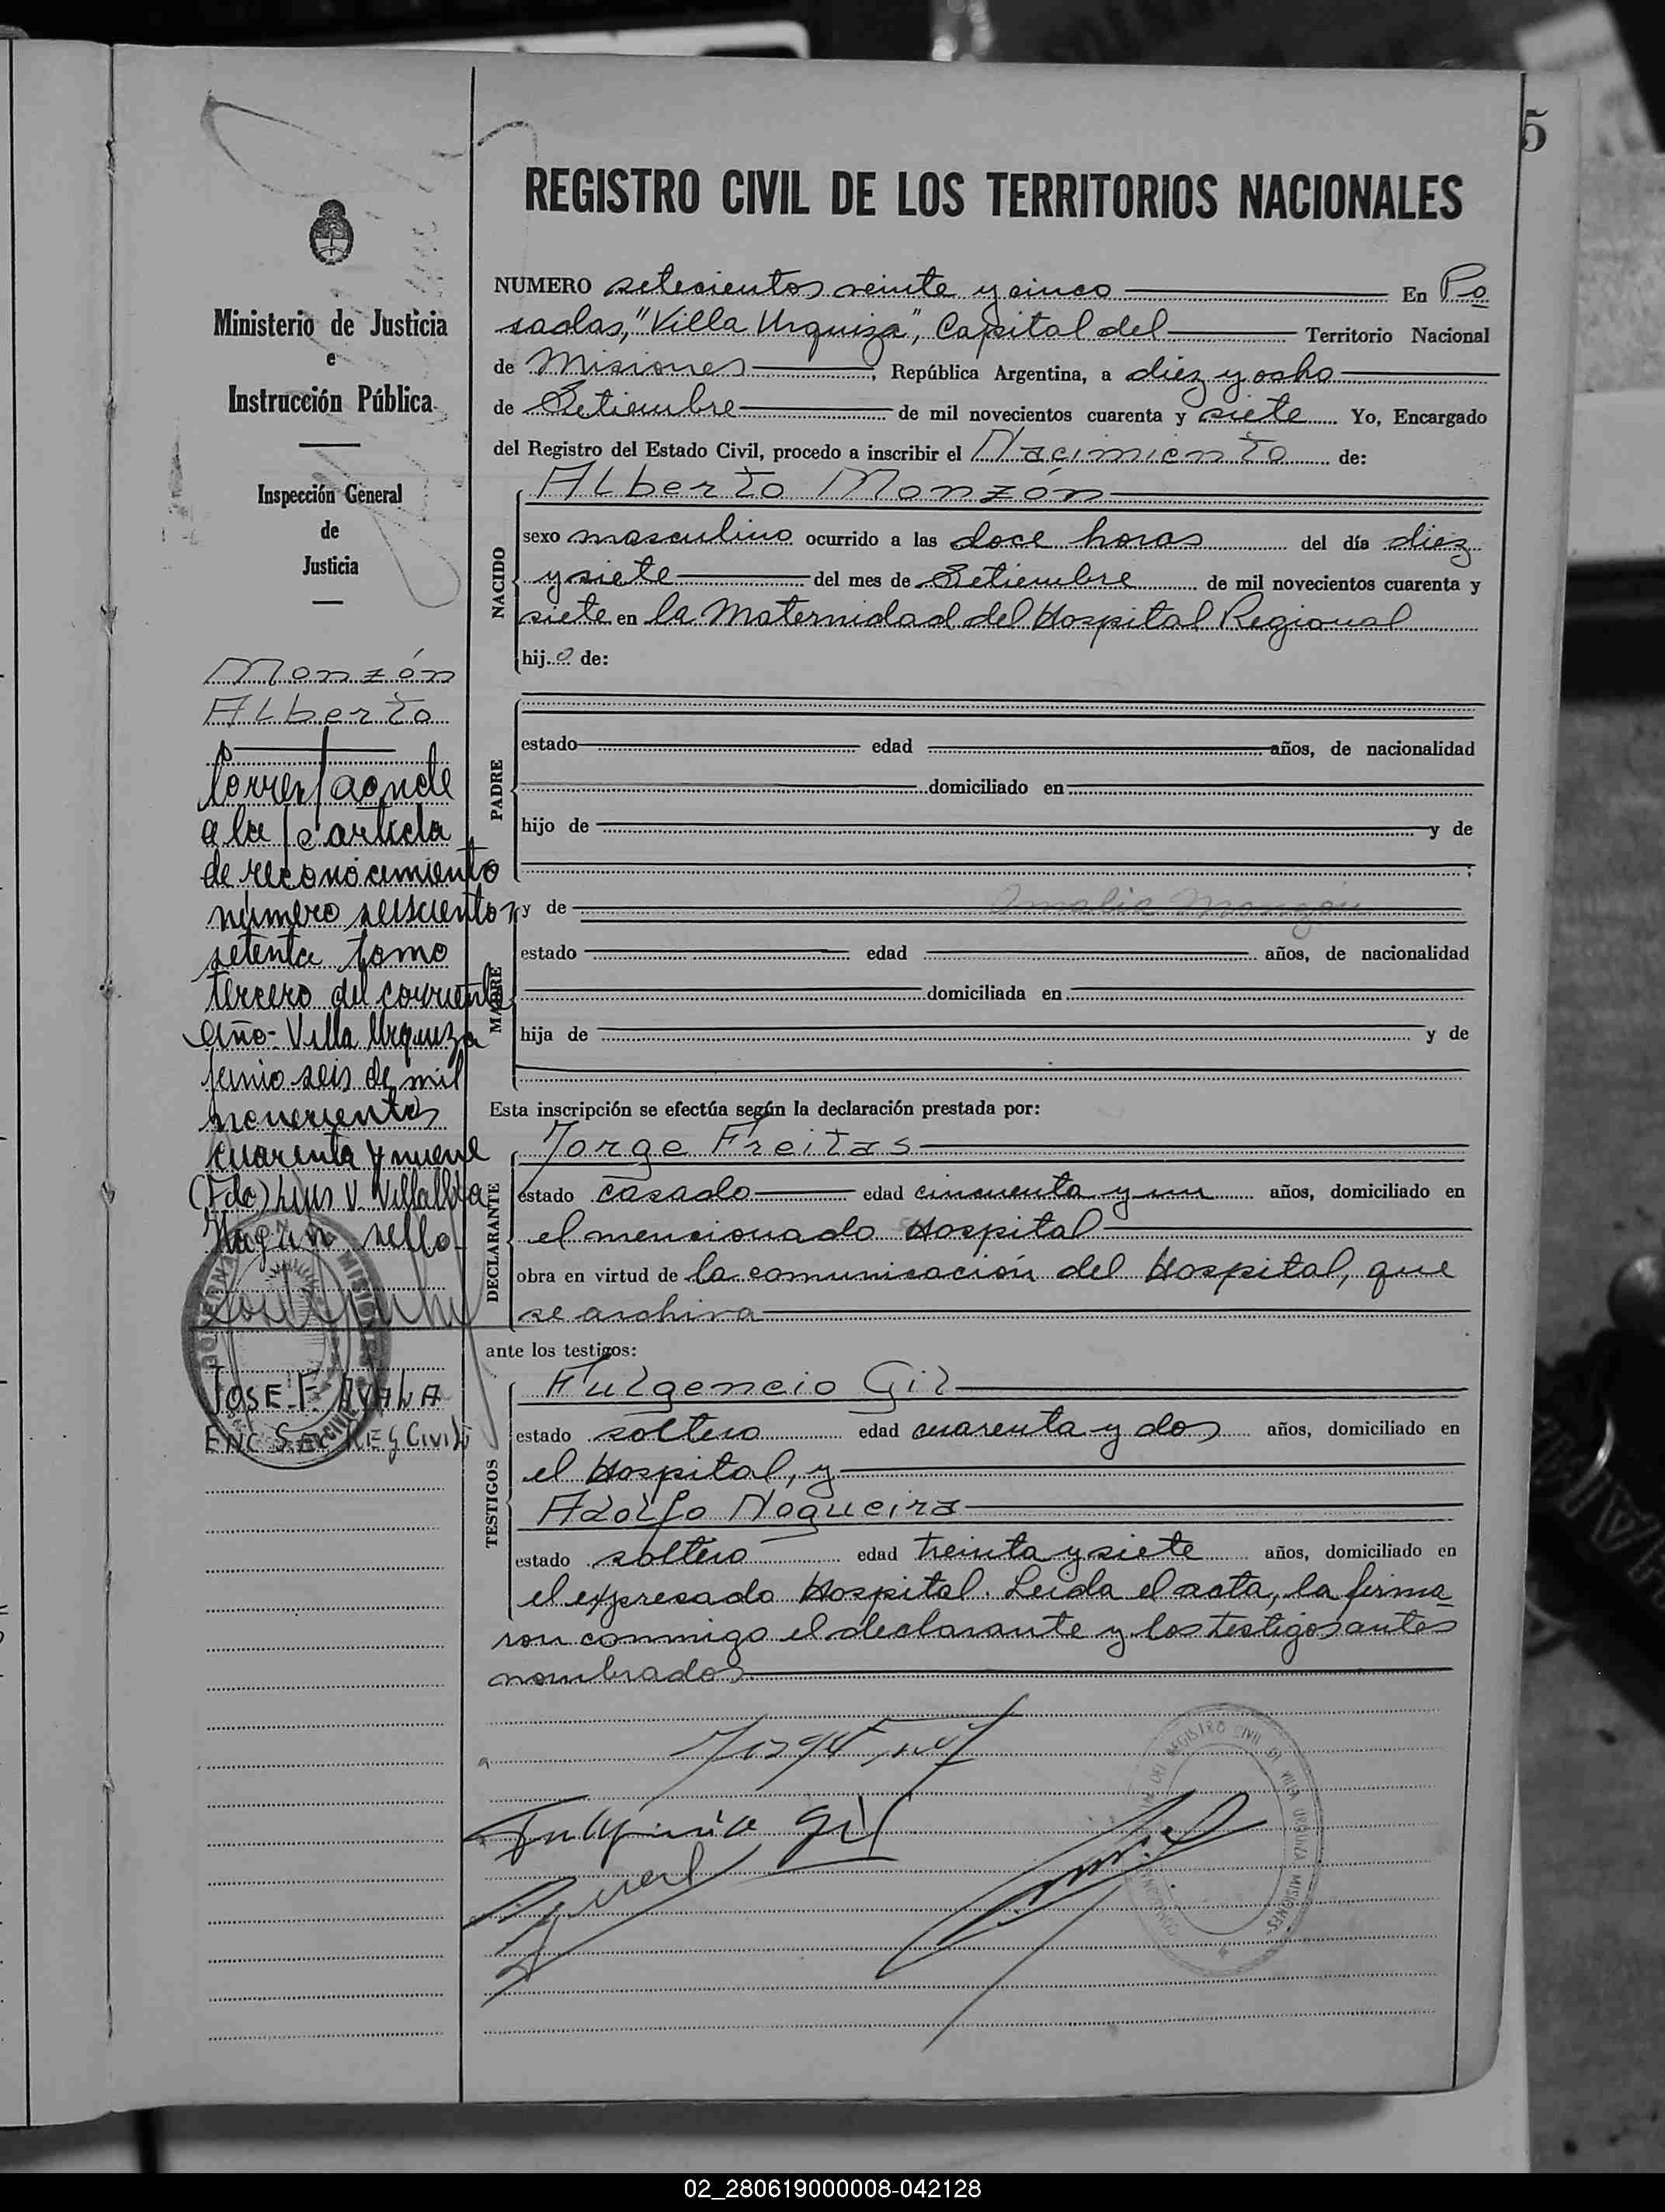 5
REGISTRO CIVIL DE LOS TERRITORIOS NACIONALES
Ministerio de Justicia
e
Instrucción Pública
Inspección General
de
Justicia
Monzón
Alberto
Corresponde
a la partida
de reconocimiento
número seiscientos
setenta tomo
tercero del corriente
año - Villa Urquiza
junio seis de mil
novecientos
cuarenta y nueve
(Fdo) Luis V. Villalba
Hay un sello
JOSE F. AYALA
ENC. Sec REG CIVIL
NUMERO setecientos veinte y cinco En Po
sadas, "Villa Urquiza", Capital del Territorio Nacional
de Misiones, República Argentina, a diez y ocho
de Setiembre de mil novecientos cuarenta y siete Yo, Encargado
del Registro del Estado Civil, procedo a inscribir el Nacimiento de:
NACIDO
Alberto Monzón
sexo masculino ocurrido a las doce horas del día diez
y siete del mes de Setiembre de mil novecientos cuarenta y
siete en la Maternidad del Hospital Regional
hij.o de:
PADRE
estado edad años, de nacionalidad
domiciliado en
hijo de y de
;
MADRE
y de Amalia Monzón
estado edad años, de nacionalidad
domiciliada en
hija de y de
Esta inscripción se efectúa según la declaración prestada por:
DECLARANTE
Jorge Freitas
estado casado edad cincuenta y un años, domiciliado en
el mencionado Hospital
obra en virtud de la comunicación del Hospital, que
se archiva
ante los testigos:
TESTIGOS
Fulgencio Gil
estado soltero edad cuarenta y dos años, domiciliado en
el Hospital, y
Adolfo Nogueira
estado soltero edad treinta y siete años, domiciliado en
el expresado Hospital. Leida el acta, la firma
ron conmigo el declarante y los testigos antes
nombrados
Fulgencio Gil
REGISTRO CIVIL DE VILLA URQUIZA MISIONES
02_280619000008-042128